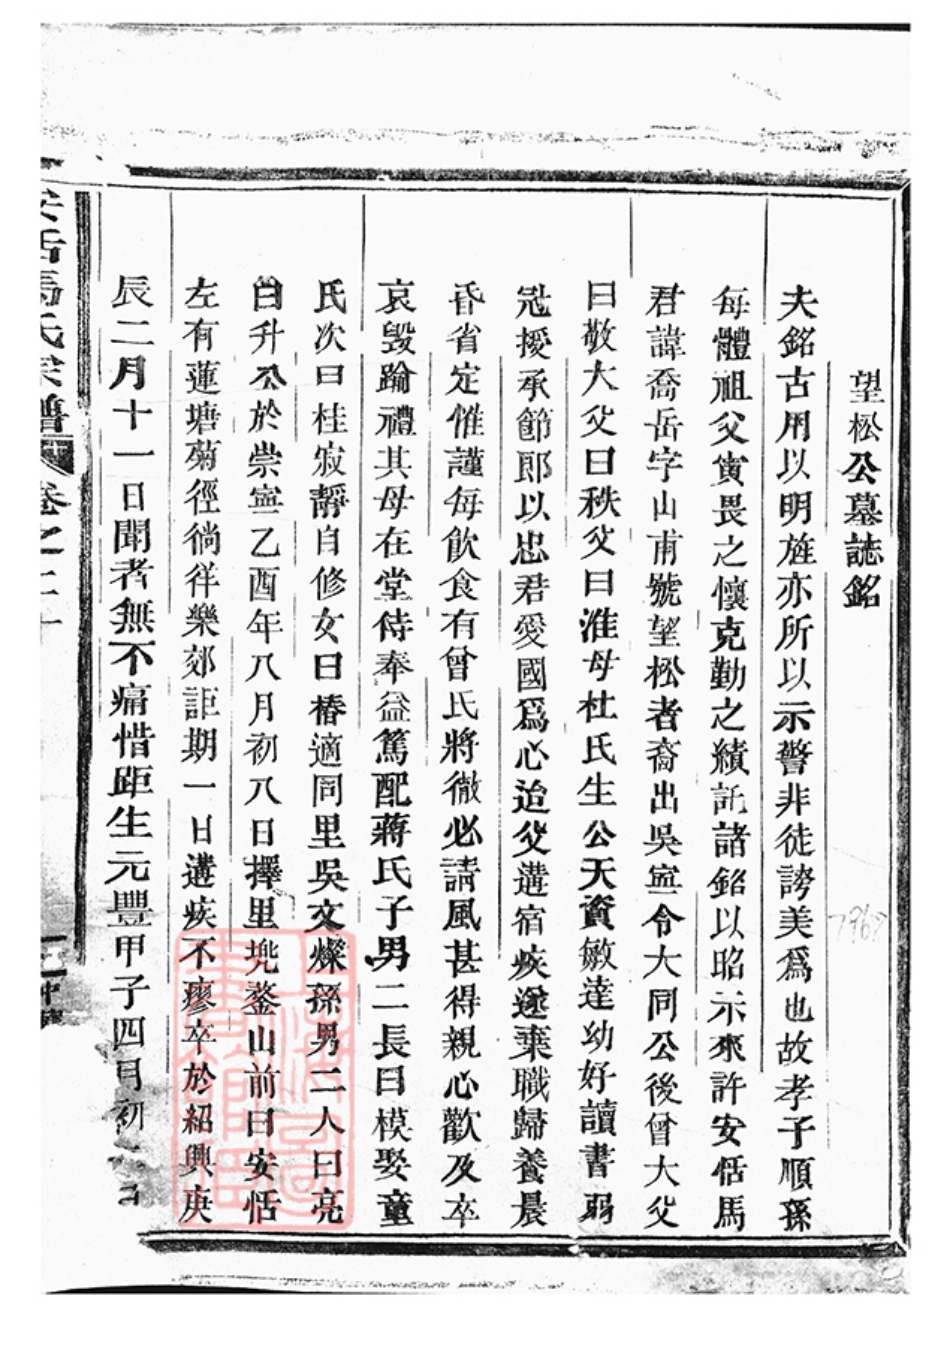 望松公墓誌銘
夫銘古用以明旌亦所以示警非徒誇美爲也故孝子順孫
每體祖父寅畏之懷克勤之績託諸銘以昭示來許安恬馬
君諱喬岳字山甫號望松者裔出吳寧令大同公後曾大父
曰敬大父曰秩父曰淮母杜氏生公天資敏達幼好讀書弱
冠授承節郎以忠君愛國爲心迨父遘宿疾遂棄職歸養晨
昏省定惟謹每飲食有曾氏將徹必請風甚得親心歡及卒
哀毀踰禮其母在堂侍奉益篤配蔣氏子男二長曰模娶童
氏次曰桂寂靜自修女曰椿適同里吳文燦孫男二人曰亮
曰升公於崇寧乙酉年八月初八日擇里兠鍪山前曰安恬
左有蓮塘菊徑徜徉樂郊詎期一日遘疾不瘳卒於紹興庚
辰二月十一日聞者無不痛惜距生元豐甲子四月初
恬馬氏宗譜 卷之二
7968